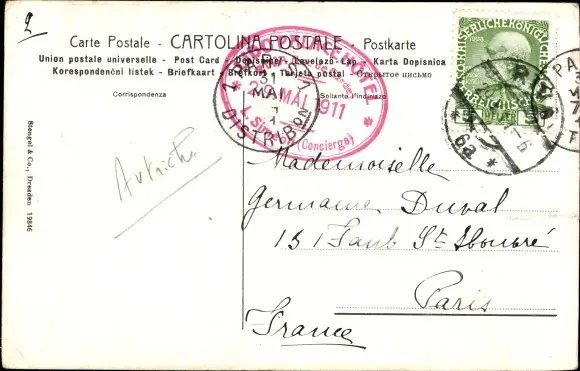 2
Carte Postale - CARTOLINA POSTALE - Postkarte
Union postale universelle - Post Card - Dopisnice - Lavelező-Lap - Karta Dopisnica
Korespondenční lístek - Briefkaart - Brefkort - Tarjeta postal - Открытое письмо
Corrispondenza
Soltanto l'indirizzo
EXPO HOTEL
MAI 1911
(Concierge)
PARIS
31
MAI
11
DISTRIBON
KAISERLICHEKÖNIGLICHE
1908
5
HELLER
6a
PA
Autriche
Mademoiselle
Germaine Duval
151 Faub St Honoré
Paris
France
Stengel & Co., Dresden 19846